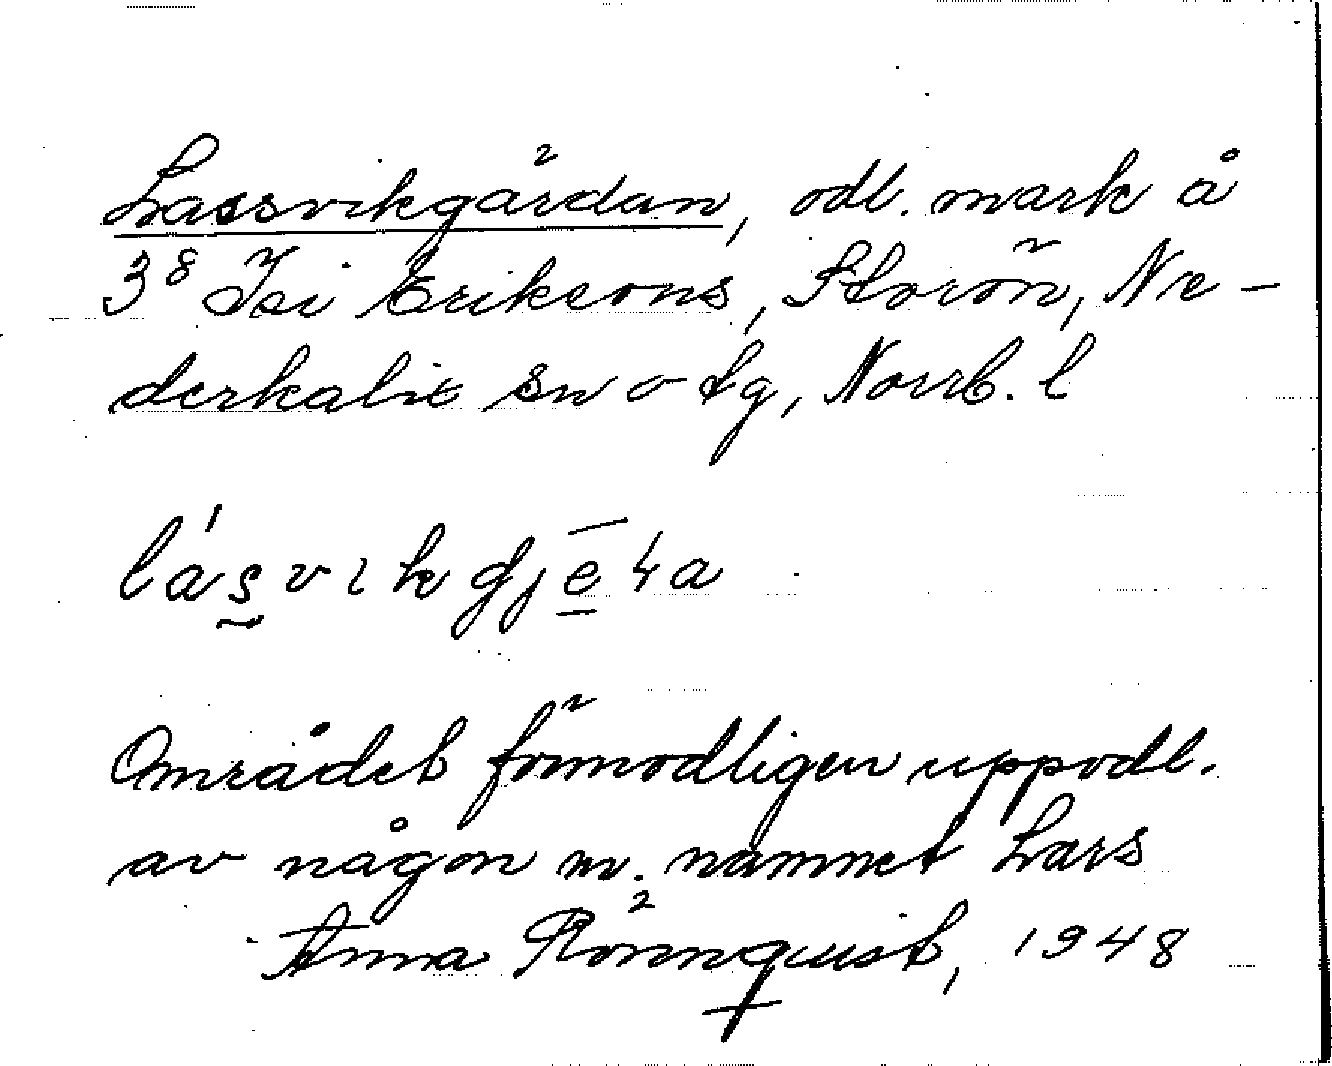 Lassvikgärdan, odl. mark å
3⁸ Isi Eriksons, Storön, Ne-
derkalix sn o tg, Norrb. l
lásvikgjēʰa
Området förmodligen uppodl.
av någon m. namnet Lars
Anna Rönnquist, 1948